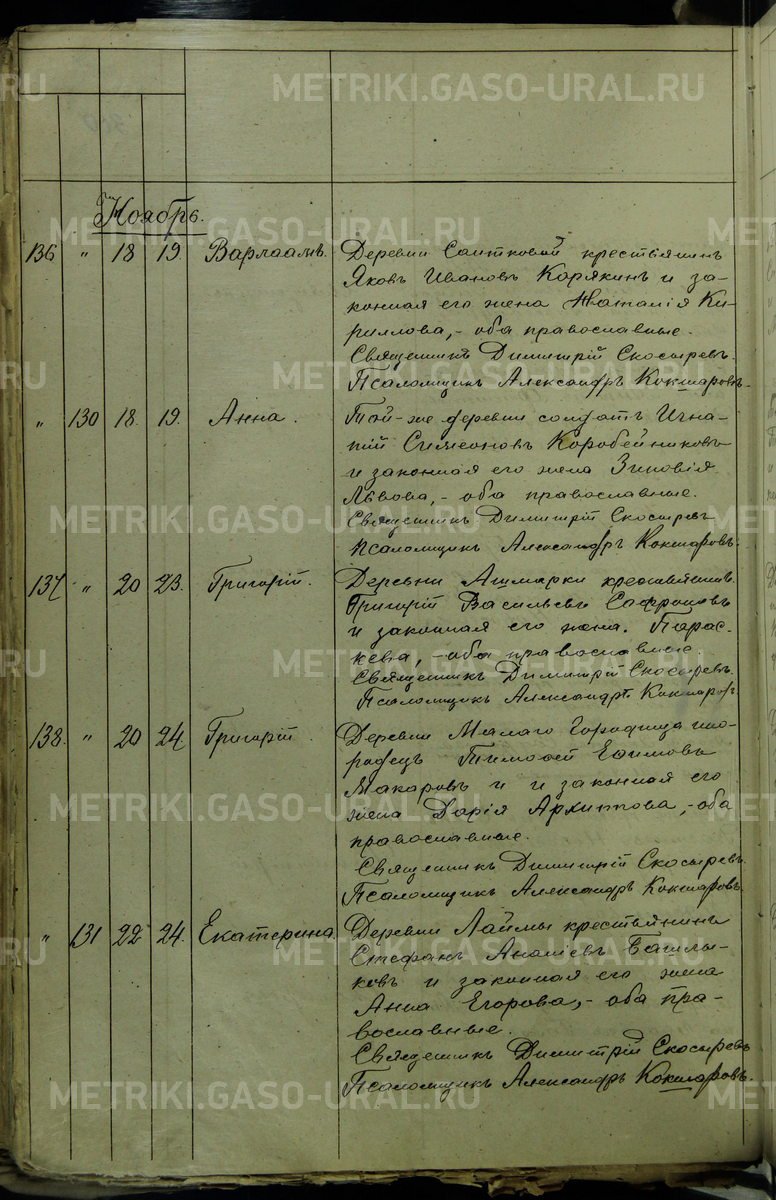 Ноябрь.
136 " 18 19 Варлаамъ. Деревни Саитковой крестьянинъ
Яковъ Ивановъ Карякинъ и за-
конная его жена Наталія Ки-
риллова, - оба православные.
Священникъ Димитрій Скосыревъ.
Псаломщикъ Александръ Кокшаровъ.
" 130 18 19. Анна. Той-же деревни солдатъ Игна-
тій Симеоновъ Коробейниковъ
и законная его жена Зиновія
Львова, - оба православные.
Священникъ Димитрій Скосыревъ
Псаломщикъ Александръ Кокшаровъ.
137 " 20 23. Григорій. Деревни Ашмарки крестьянинъ
Григорій Васильевъ Сафроновъ
и законная его жена. Парас-
кева, - оба православные.
Священникъ Димитрій Скосыревъ.
Псаломщикъ Александръ Кокшаровъ
138. " 20 24 Григорій. Деревни Малаго Городища ино-
родецъ Тимофей Ефимовъ
Макаровъ и и законная его
жена Дарія Архипова, - оба
православные.
Священникъ Димитрій Скосыревъ.
Псаломщикъ Александръ Кокшаровъ.
" 131 22 24. Екатерина. Деревни Лаймы крестьянинъ
Стефанъ Ананіевъ Башлы-
ковъ и законная его жена
Анна Егорова, - оба пра-
вославные.
Священникъ Димитрій Скосыревъ
Псаломщикъ Александръ Кокшаровъ.
METRIKI.GASO-URAL.RU